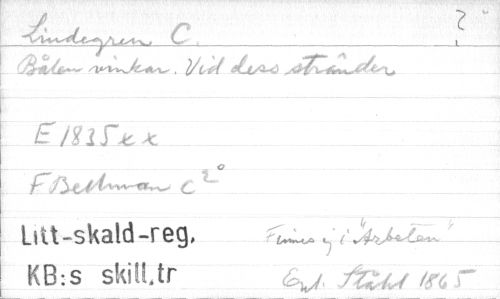 Lindegren C. ?
Bålen vinkar. Vid dess stränder
E 1835 x x
F Bellman C 2°
Litt-skald-reg. Finnes ej i "Arbeten"
KB:s skill.tr Enl. Ståhl 1865